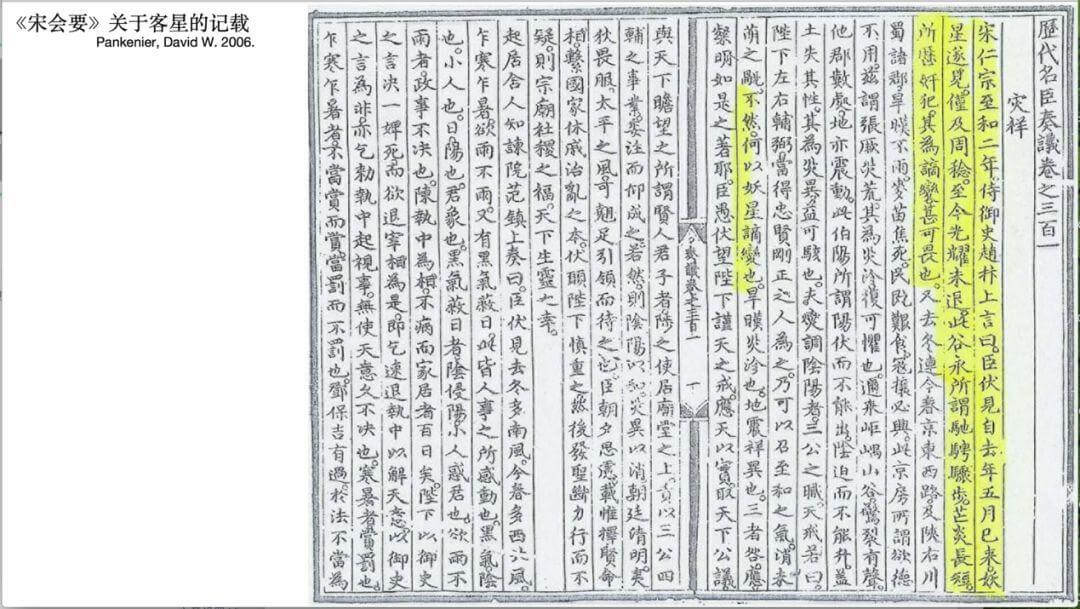 《宋会要》关于客星的记载
Pankenier, David W. 2006.
歷代名臣奏議卷之三百一
灾祥
宋仁宗至和二年侍御史趙抃上言曰臣伏見自去年五月已来妖
星遂見僅及周稔至今光耀未退此谷永所謂馳騁驟步芒炎長短
所歷奸犯其為謫變甚可畏也又去冬連今春京東西路及陝右川
蜀諸郡旱暵不雨麥苗焦死民既艱食寇攘必興此京房所謂欲德
不用茲謂張厥灾荒其為灾沴復可懼也邇来岠嵎山谷驚裂有聲
他郡數處地亦震動此伯陽所謂陽伏而不能出陰迫而不能升蓋
土失其性其為灾異益可駭也夫燮調陰陽者三公之職天戒若曰
陛下左右輔弼當得忠賢剛正之人為之乃可以召至和之氣消未
萌之不然何以妖星謫變也旱暵灾沴也地震祥異也三者咎應
明如是之著耶臣愚伏望陛下謹天之戒應天以實取天下公議
奏議卷之三百一
與天下瞻望之所謂賢人君子者陟之使居廟堂之上責以三公四
輔之事業委注而仰成之若然則陰陽以和灾異以消朝廷清明夷
狄畏服太平之風可翹足引領而待之臣朝夕思慮載惟擇賢命
相繫國家休戚治亂之本伏願陛下慎重之然後發聖斷力行而不
疑則宗廟社稷之福天下生靈之幸
起居舍人知諫院范鎮上奏曰臣伏見去冬多南風今春多西北風
乍寒乍暑欲雨不雨又有黑氣蔽日此皆人事之所感動也黑氣陰
也小人也日陽也君象也黑氣蔽日者陰侵陽小人惑君也欲雨不
雨者政事不决也陳執中為相不病而家居者百日矣陛下以御史
之言决一婢死而欲退宰相為是即乞速退執中以解天意以御史
之言為非亦乞勑執中起視事無使天意久不决也寒暑者賞罰也
乍寒乍暑者不當賞而賞當罰而不罰也鄧保吉有過於法不當為